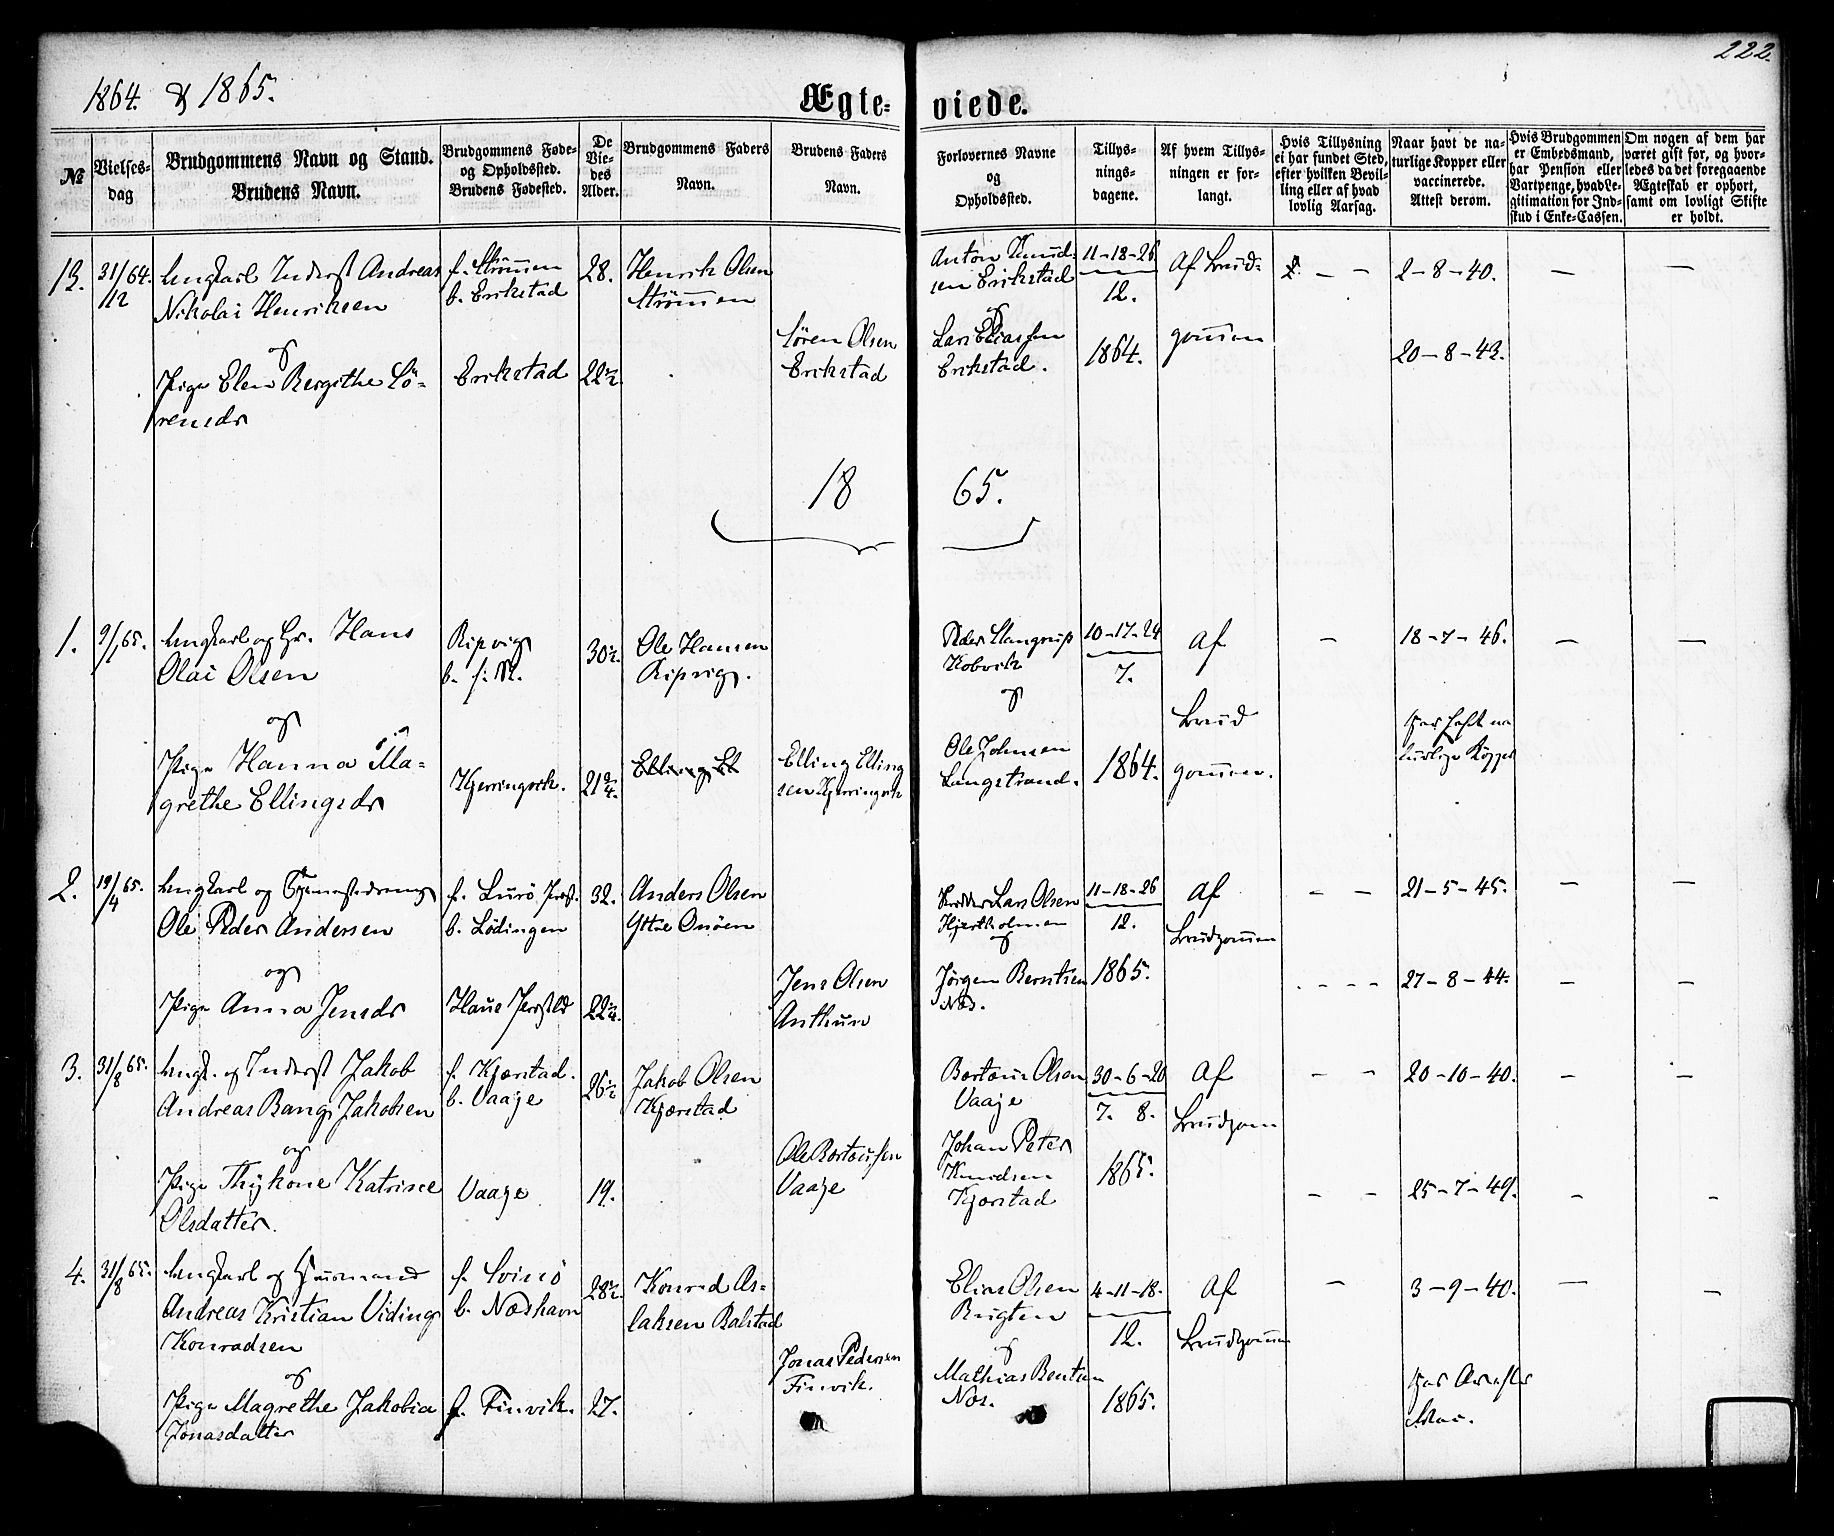 222.
1864. & 1865.
Ægte-
viede.
№
Vielses-
dag
Brudgommens Navn og Stand.
Brudens Navn.
Brudgommens Føde-
og Opholdssted.
Brudens Fødested.
De
Vie-
des
Alder.
Brudgommens Faders
Navn.
Brudens Faders
Navn.
Forlovernes Navne
og
Opholdssted.
Tillys-
nings-
dagene.
Af hvem Tillys-
ningen er for-
langt.
Hvis Tillysning
ei har fundet Sted,
efter hvilken Bevil-
ling eller af hvad
lovlig Aarsag.
Naar havt de na-
turlige Kopper eller
vaccinerede.
Attest derom.
Hvis Brudgommen
er Embedsmand,
har Pension eller
Vartpenge, hvad Le-
gitimation for Ind-
skud i Enke-Cassen.
Om nogen af dem har
været gift før, og hvor-
ledes da det foregaaende
Ægteskab er ophørt,
samt om lovligt Skifte
er holdt.
13.
31/12 64.
Ungkarl Inderst Andreas
Nikolai Henriksen
og
Pige Elen Bergithe Sö-
rensdr
f. Strömmen
b. Erikstad
Erikstad
28.
22½
Henrik Olsen
Strömmen
Sören Olsen
Erikstad
Anton Knud-
sen Erikstad
og
Lars Eliassen
Erikstad.
11-18-26
12.
1864.
Af Brud-
gommen
2-8-40.
20-8-42.
18
65.
1.
9/1 65.
Ungkarl og Gr. Hans
Olai Olsen
og
Pige Hanna Ma-
grethe Ellingsdr
Ripvig
b. f. St.
Kjerringvik.
30½
21 2/4.
Ole Hansen
Ripvig.
Elling El
Elling Elling
sen Kjerringvik
Peder Stangrup
Kobvik
og
Ole Johnsen
Langstrand.
10-17-24
7.
1864.
Af
Brud
gommen.
18-7-46.
har havt na
turlige Kopper
2.
19/4 65.
Ungkarl og Tjenestedreng
Ole Peder Andersen
og
Pige Anna Jensdr
f. Lurö Præst.
b. Lödingen
Haus Præstld
32.
22¼.
Anders Olsen
Yttre Onöen
Jens Olsen
Anthun
Lars Olsen
Hjertholmen
og
Jörgen Berntsen
Næs.
11-18-26
12.
1865.
Af
Brudgommen
21-5-45.
27-8-44.
3.
31/8 65.
Ungk. og Inderst Jakob
Andreas Bang Jakobsen
og
Pige Thykone Katrine
Olsdatter.
f. Kjærstad.
b. Vaaje
Vaaje
26½
19.
Jakob Olsen
Kjærstad
Ole Bortæussen
Vaaje
Bortæus Olsen
Vaaje
Johan Peter
Knudsen
Kjærstad
30-6-20
7. 8.
1865.
Af
Brudgom
20-10-40.
25-7-49.
4.
31/8 65.
Ungkarl og Huusmand
Andreas Kristian Viding
Konradsen
og
Pige Magrethe Jakobia
Jonasdatter
f. Svinö
b. Næshavn
f. Finvik.
28½.
27.
Konrad As-
laksen Balstad
Jonas Pedersen
Finvik.
Elias Olsen
Brugten
og
Mathias Bentsen
Næs.
4-11-18.
12.
1865.
Af
Brudgommen
3-9-40.
har Ar efter